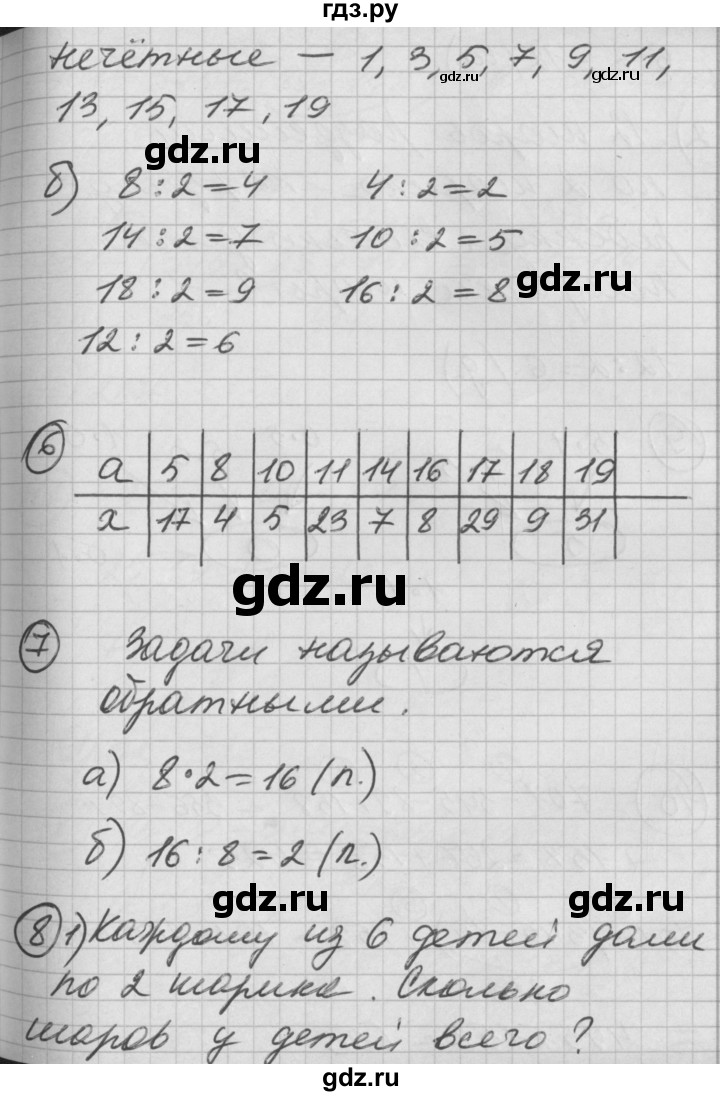 гдз.ру
нечётные — 1, 3, 5, 7, 9, 11,
gdz.ru
gdz.ru
13, 15, 17, 19
gdz.ru
б) 8 : 2 = 4 4 : 2 = 2
14 : 2 = 7 10 : 2 = 5
gdz.ru
18 : 2 = 9 16 : 2 = 8
12 : 2 = 6
6
а 5 8 10 11 14 16 17 18 19
х 17 4 5 23 7 8 29 9 31
gdz.ru
7 Задачи называются
обратными.
а) 8 · 2 = 16 (п.)
б) 16 : 8 = 2 (п.)
gdz.ru
gdz.ru
8 1) Каждому из 6 детей дали
по 2 шарика. Сколько
шаров у детей всего?
gdz.ru